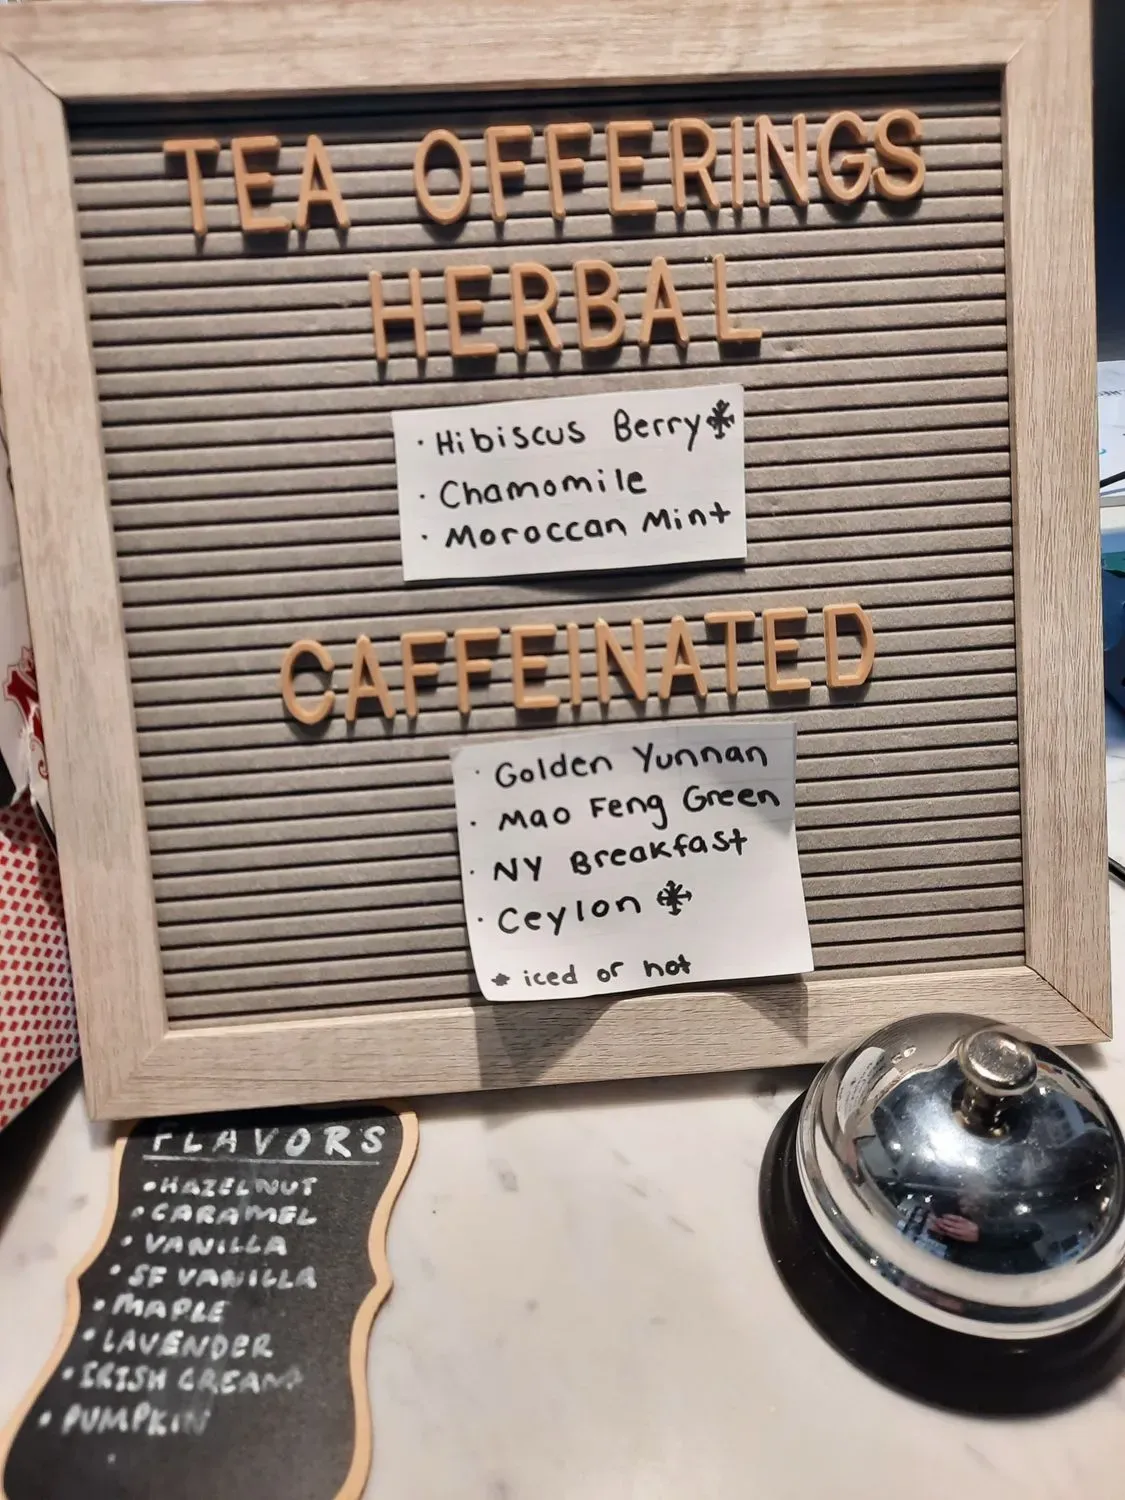 TEA OFFERINGS
HERBAL
· Hibiscus Berry*
· Chamomile
· Moroccan Mint
CAFFEINATED
· Golden Yunnan
· Mao Feng Green
· NY Breakfast
· Ceylon *
* iced or hot
FLAVORS
• HAZELNUT
• CARAMEL
• VANILLA
• SF VANILLA
• MAPLE
• LAVENDER
• IRISH CREAM
• PUMPKIN